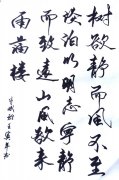 树欲静而风不至
淡泊以明志宁静
而致远山风欲来
雨满楼
壬寅年书